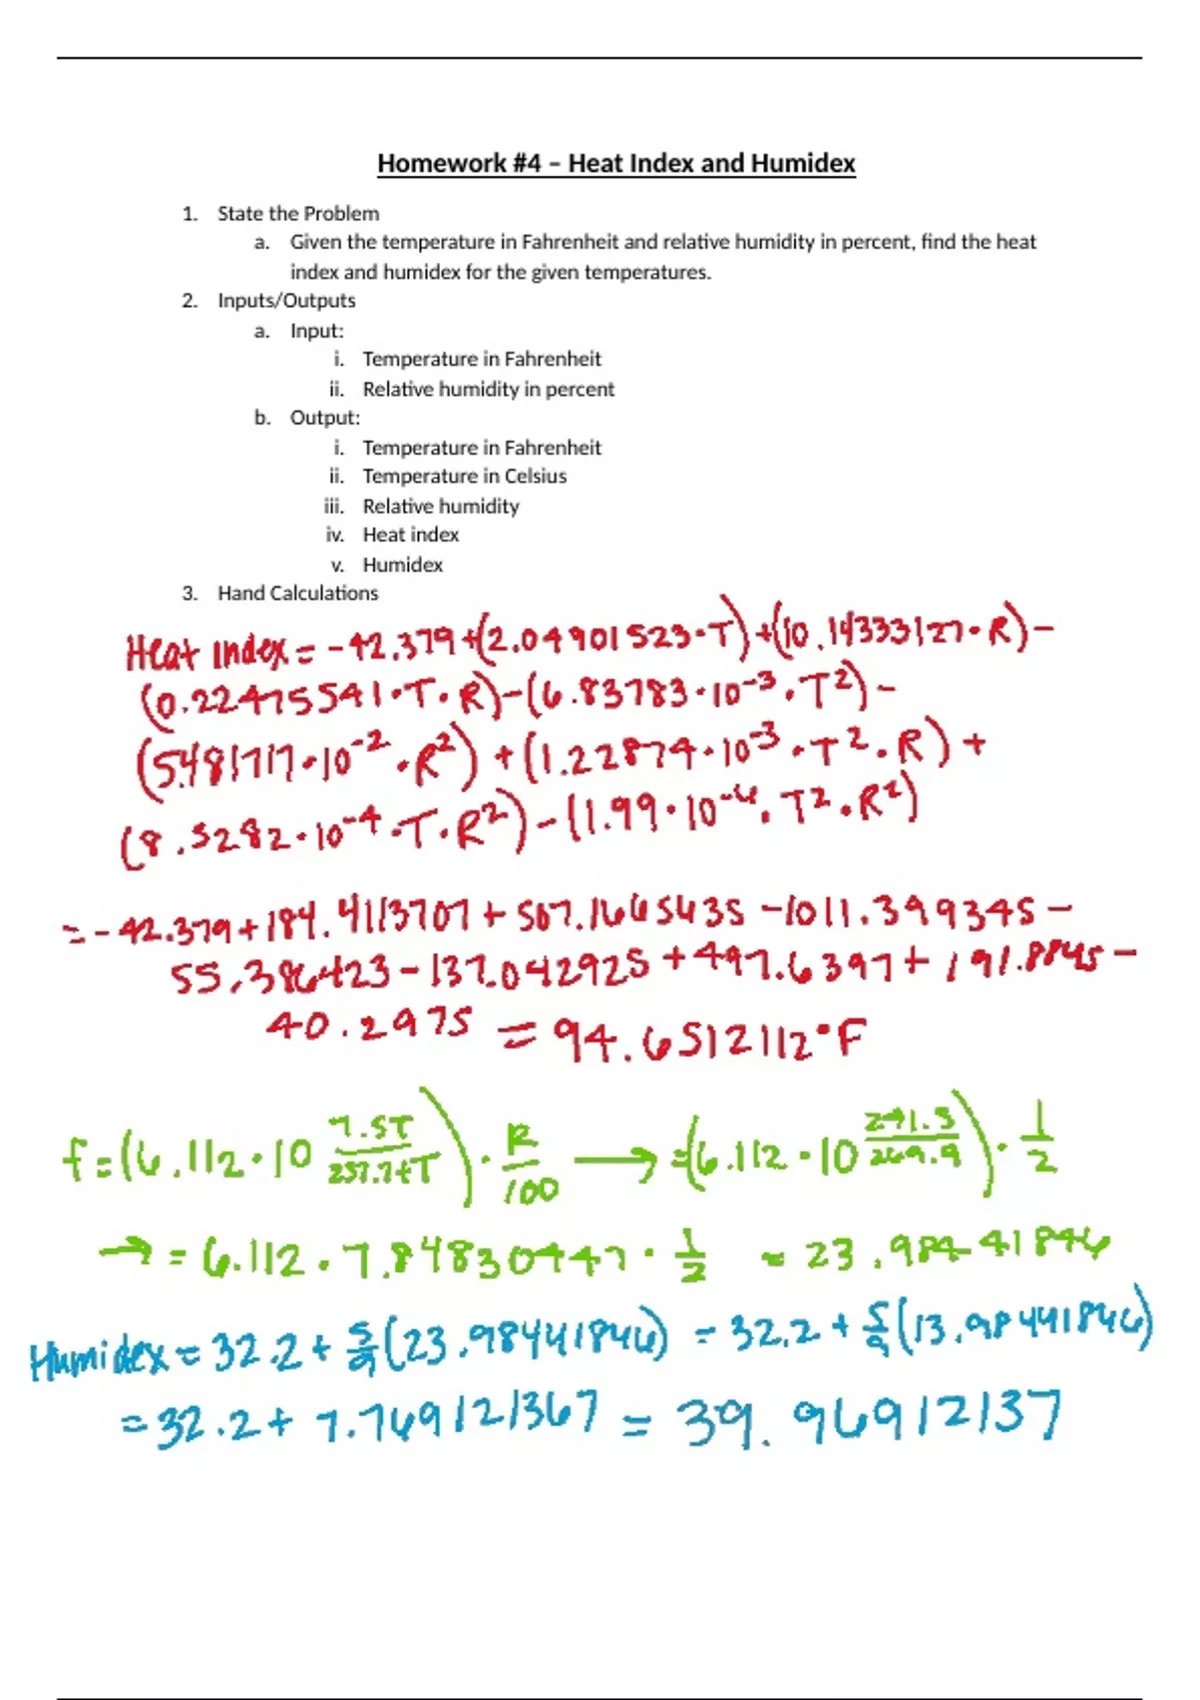 Homework #4 – Heat Index and Humidex
1. State the Problem
a. Given the temperature in Fahrenheit and relative humidity in percent, find the heat
index and humidex for the given temperatures.
2. Inputs/Outputs
a. Input:
i. Temperature in Fahrenheit
ii. Relative humidity in percent
b. Output:
i. Temperature in Fahrenheit
ii. Temperature in Celsius
iii. Relative humidity
iv. Heat index
v. Humidex
3. Hand Calculations
Heat index = -42.379 + (2.04901523·T) + (10.14333127·R) -
(0.22475541·T·R) - (6.83783·10^-3·T^2) -
(5.481717·10^-2·R^2) + (1.22874·10^-3·T^2·R) +
(8.5282·10^-4·T·R^2) - (1.99·10^-4·T^2·R^2)
= -42.379 + 184.4113707 + 507.1665635 - 1011.399345 -
55.386423 - 137.042925 + 497.6397 + 191.8845 -
40.2975 = 94.6512112°F
f = (6.112·10^(7.5T/(237.7+T)))·R/100 → = (6.112·10^(241.5/269.9))·1/2
→ = 6.112·7.848304447·1/2 = 23.98441846
Humidex = 32.2 + 5/9(23.98441846) = 32.2 + 5/9(13.98441846)
= 32.2 + 7.769121367 = 39.96912137